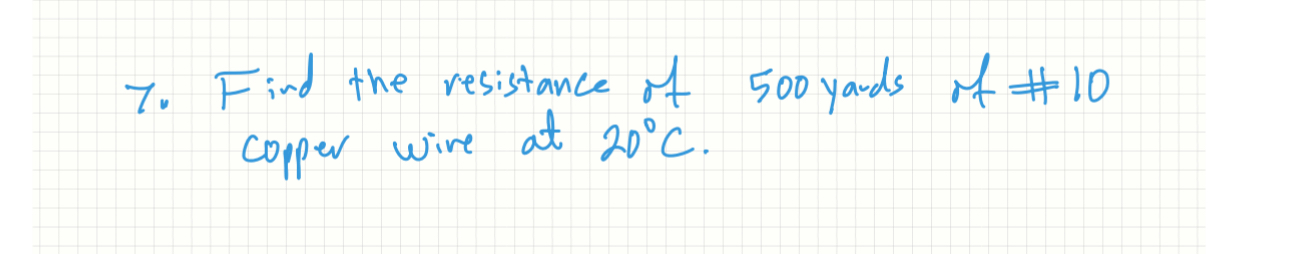 7. Find the resistance of 500 yards of #10
copper wire at 20°C.